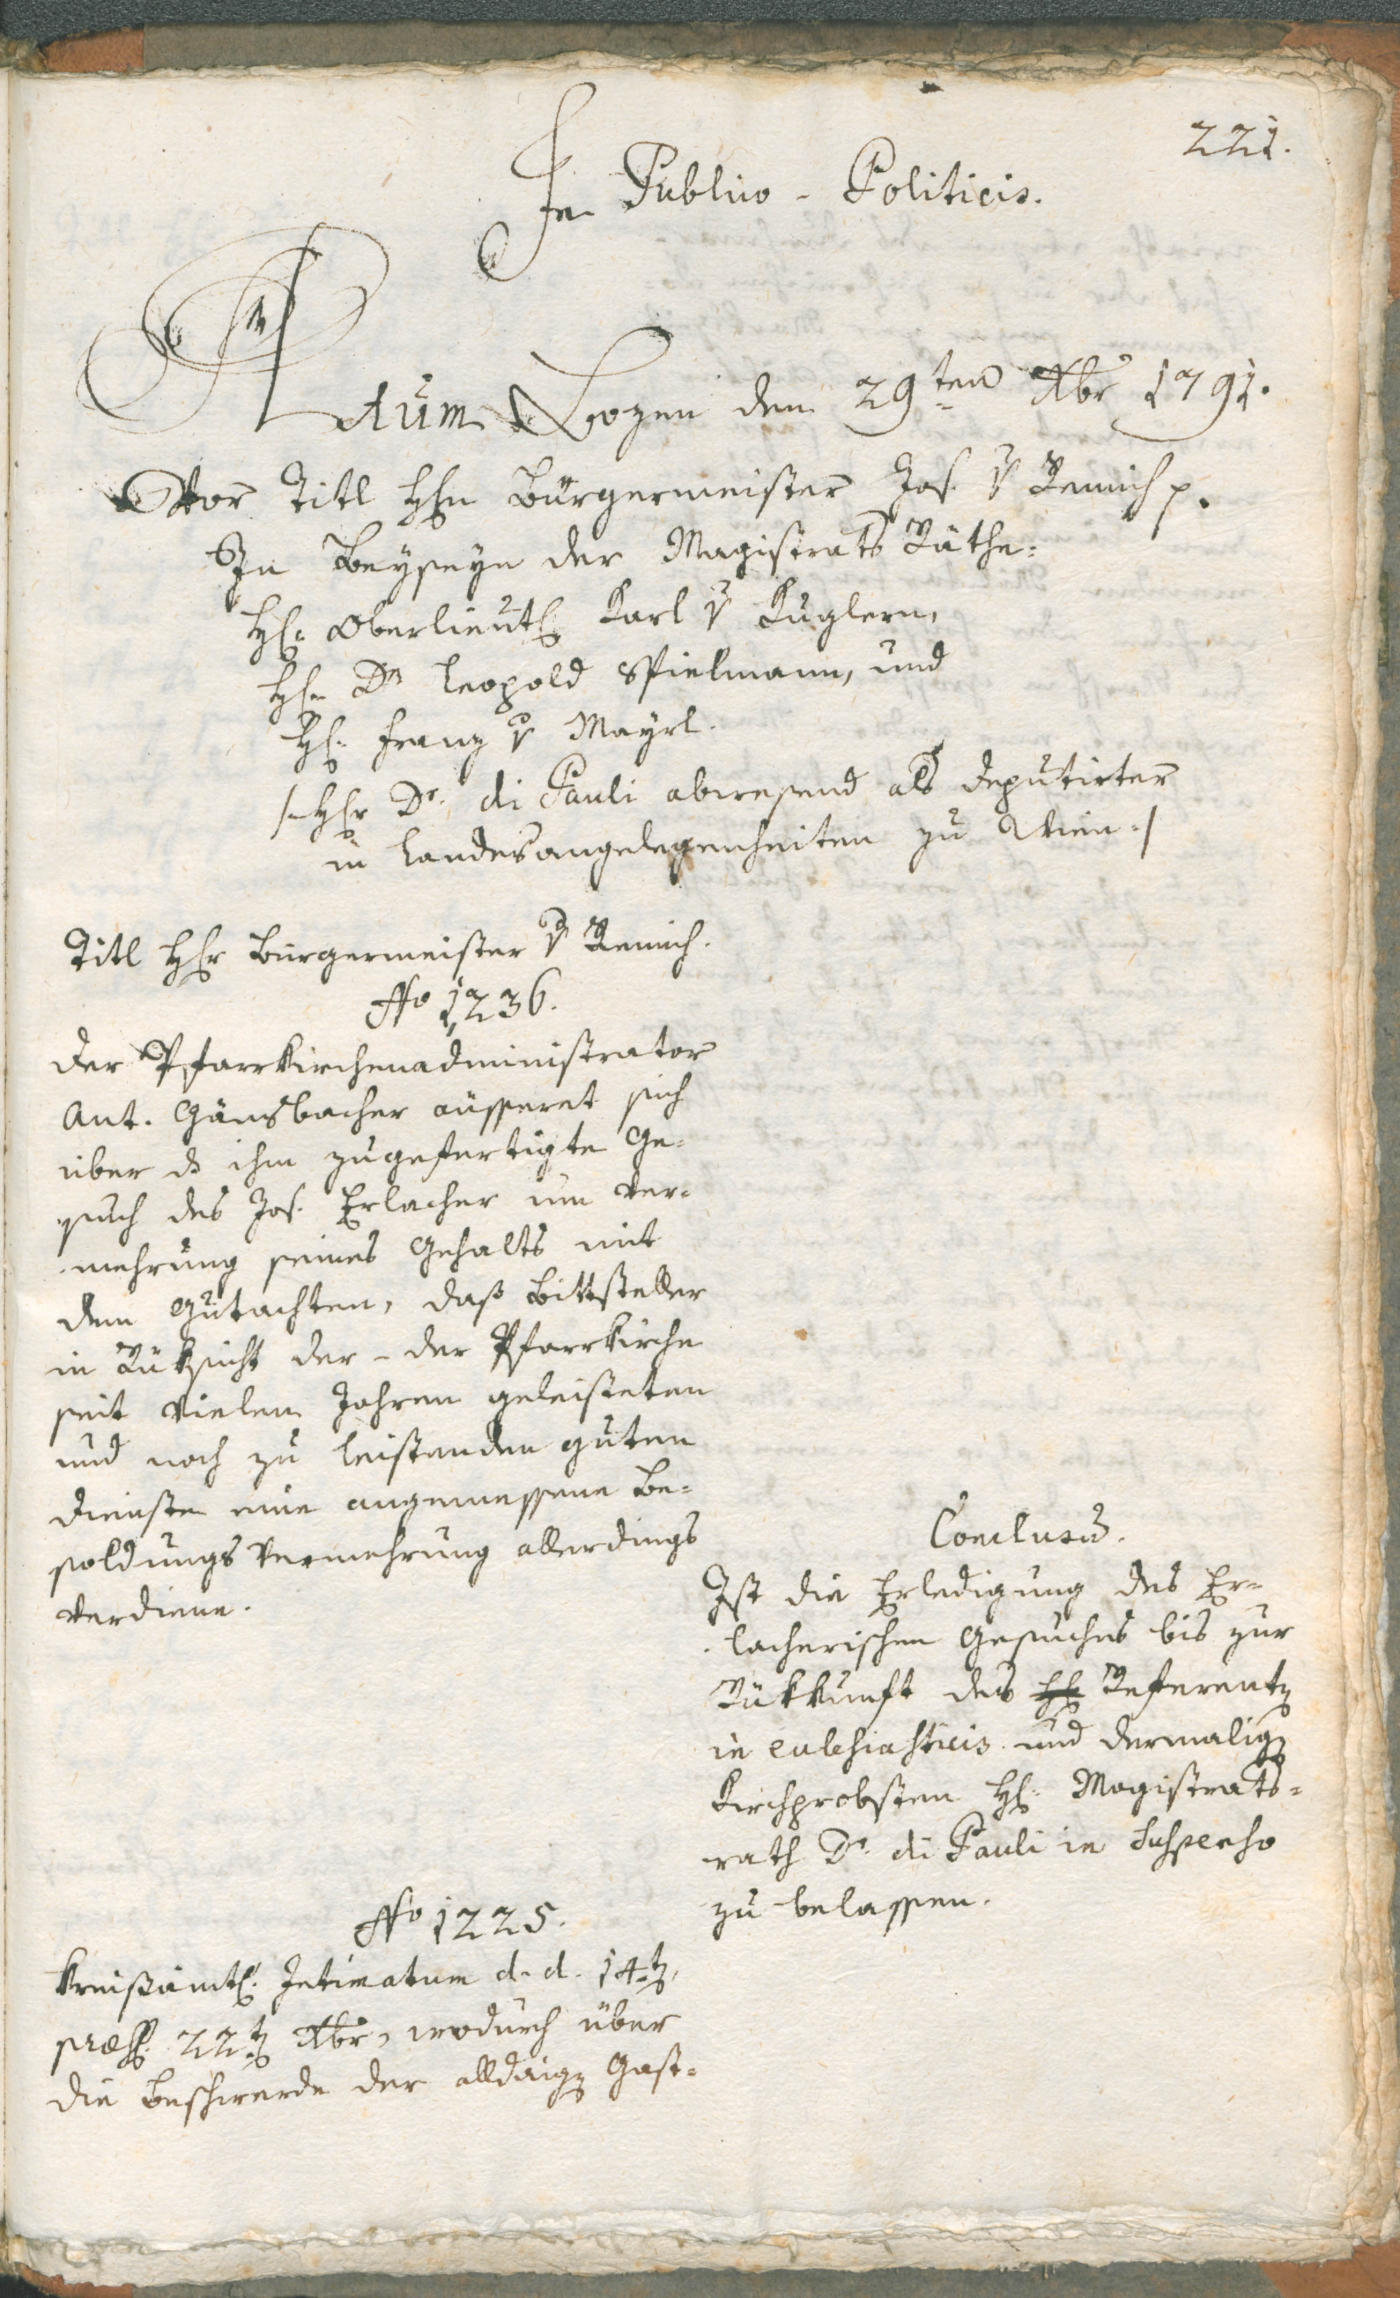 221.
In Publico - Politicis.
Actum Bozen den 29ten Xbr 1791.
Vor Titl Hhn Bürgermeister Jos. v Remich p.
In Beyseyn der Magistrats Räthe:
HH: Oberlieut: Karl v Kuglern,
Hhn Dr Leopold Spielmann, und
HH: Franz v Mayrl.
/: Hhr Dr. di Pauli abwesend als Deputirter
in Landesangelegenheiten zu Wien :/
Titl Hhr Bürgermeister v Remich.
No 1236.
Der Pfarrkirchenadministrator
Ant. Gänsbacher äusseret sich
über ds ihm zugefertigte Ge-
such des Jos. Erlacher um Ver-
mehrung seines Gehalts mit
dem Gutachten, daß Bittsteller
in Rüksicht der - der Pfarrkirche
seit vielen Jahren geleisteten
und noch zu leistenden guten
Dienste eine angemessene Be-
soldungs Vermehrung allerdings
verdiene.
Conclusum.
Ist die Erledigung des Er-
lacherischen Gesuches bis zur
Rükkunft des HH Referenten
in Eccleshiasticis und dermaligen
Kirchprobsten HH: Magistrats-
rath Dr. di Pauli in Suspenso
zu belassen.
No 1225.
Kreisämtl: Intimatum d. d. 14ten
præs: 22ten Xbr, wodurch über
die Beschwerde der alldaigen Gast-